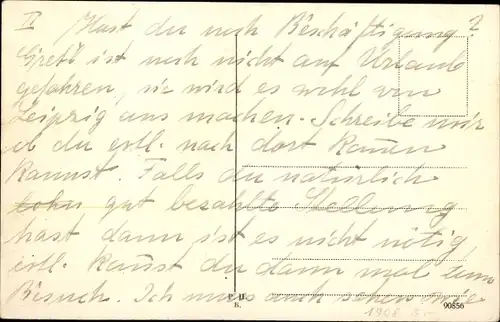 II Hast du noch Beschäftigung?
Gretl ist noch nicht auf Urlaub
gefahren, sie wird es wohl von
Leipzig aus machen. Schreibe mir
ob du evtl. nach dort kommen
kannst. Falls du natürlich
Lohn gut bezahlte Stellung
hast dann ist es nicht nötig,
evtl. kannst du dann mal zum
Besuch. Ich muss auch sehen wie
P. H.
B.
90856